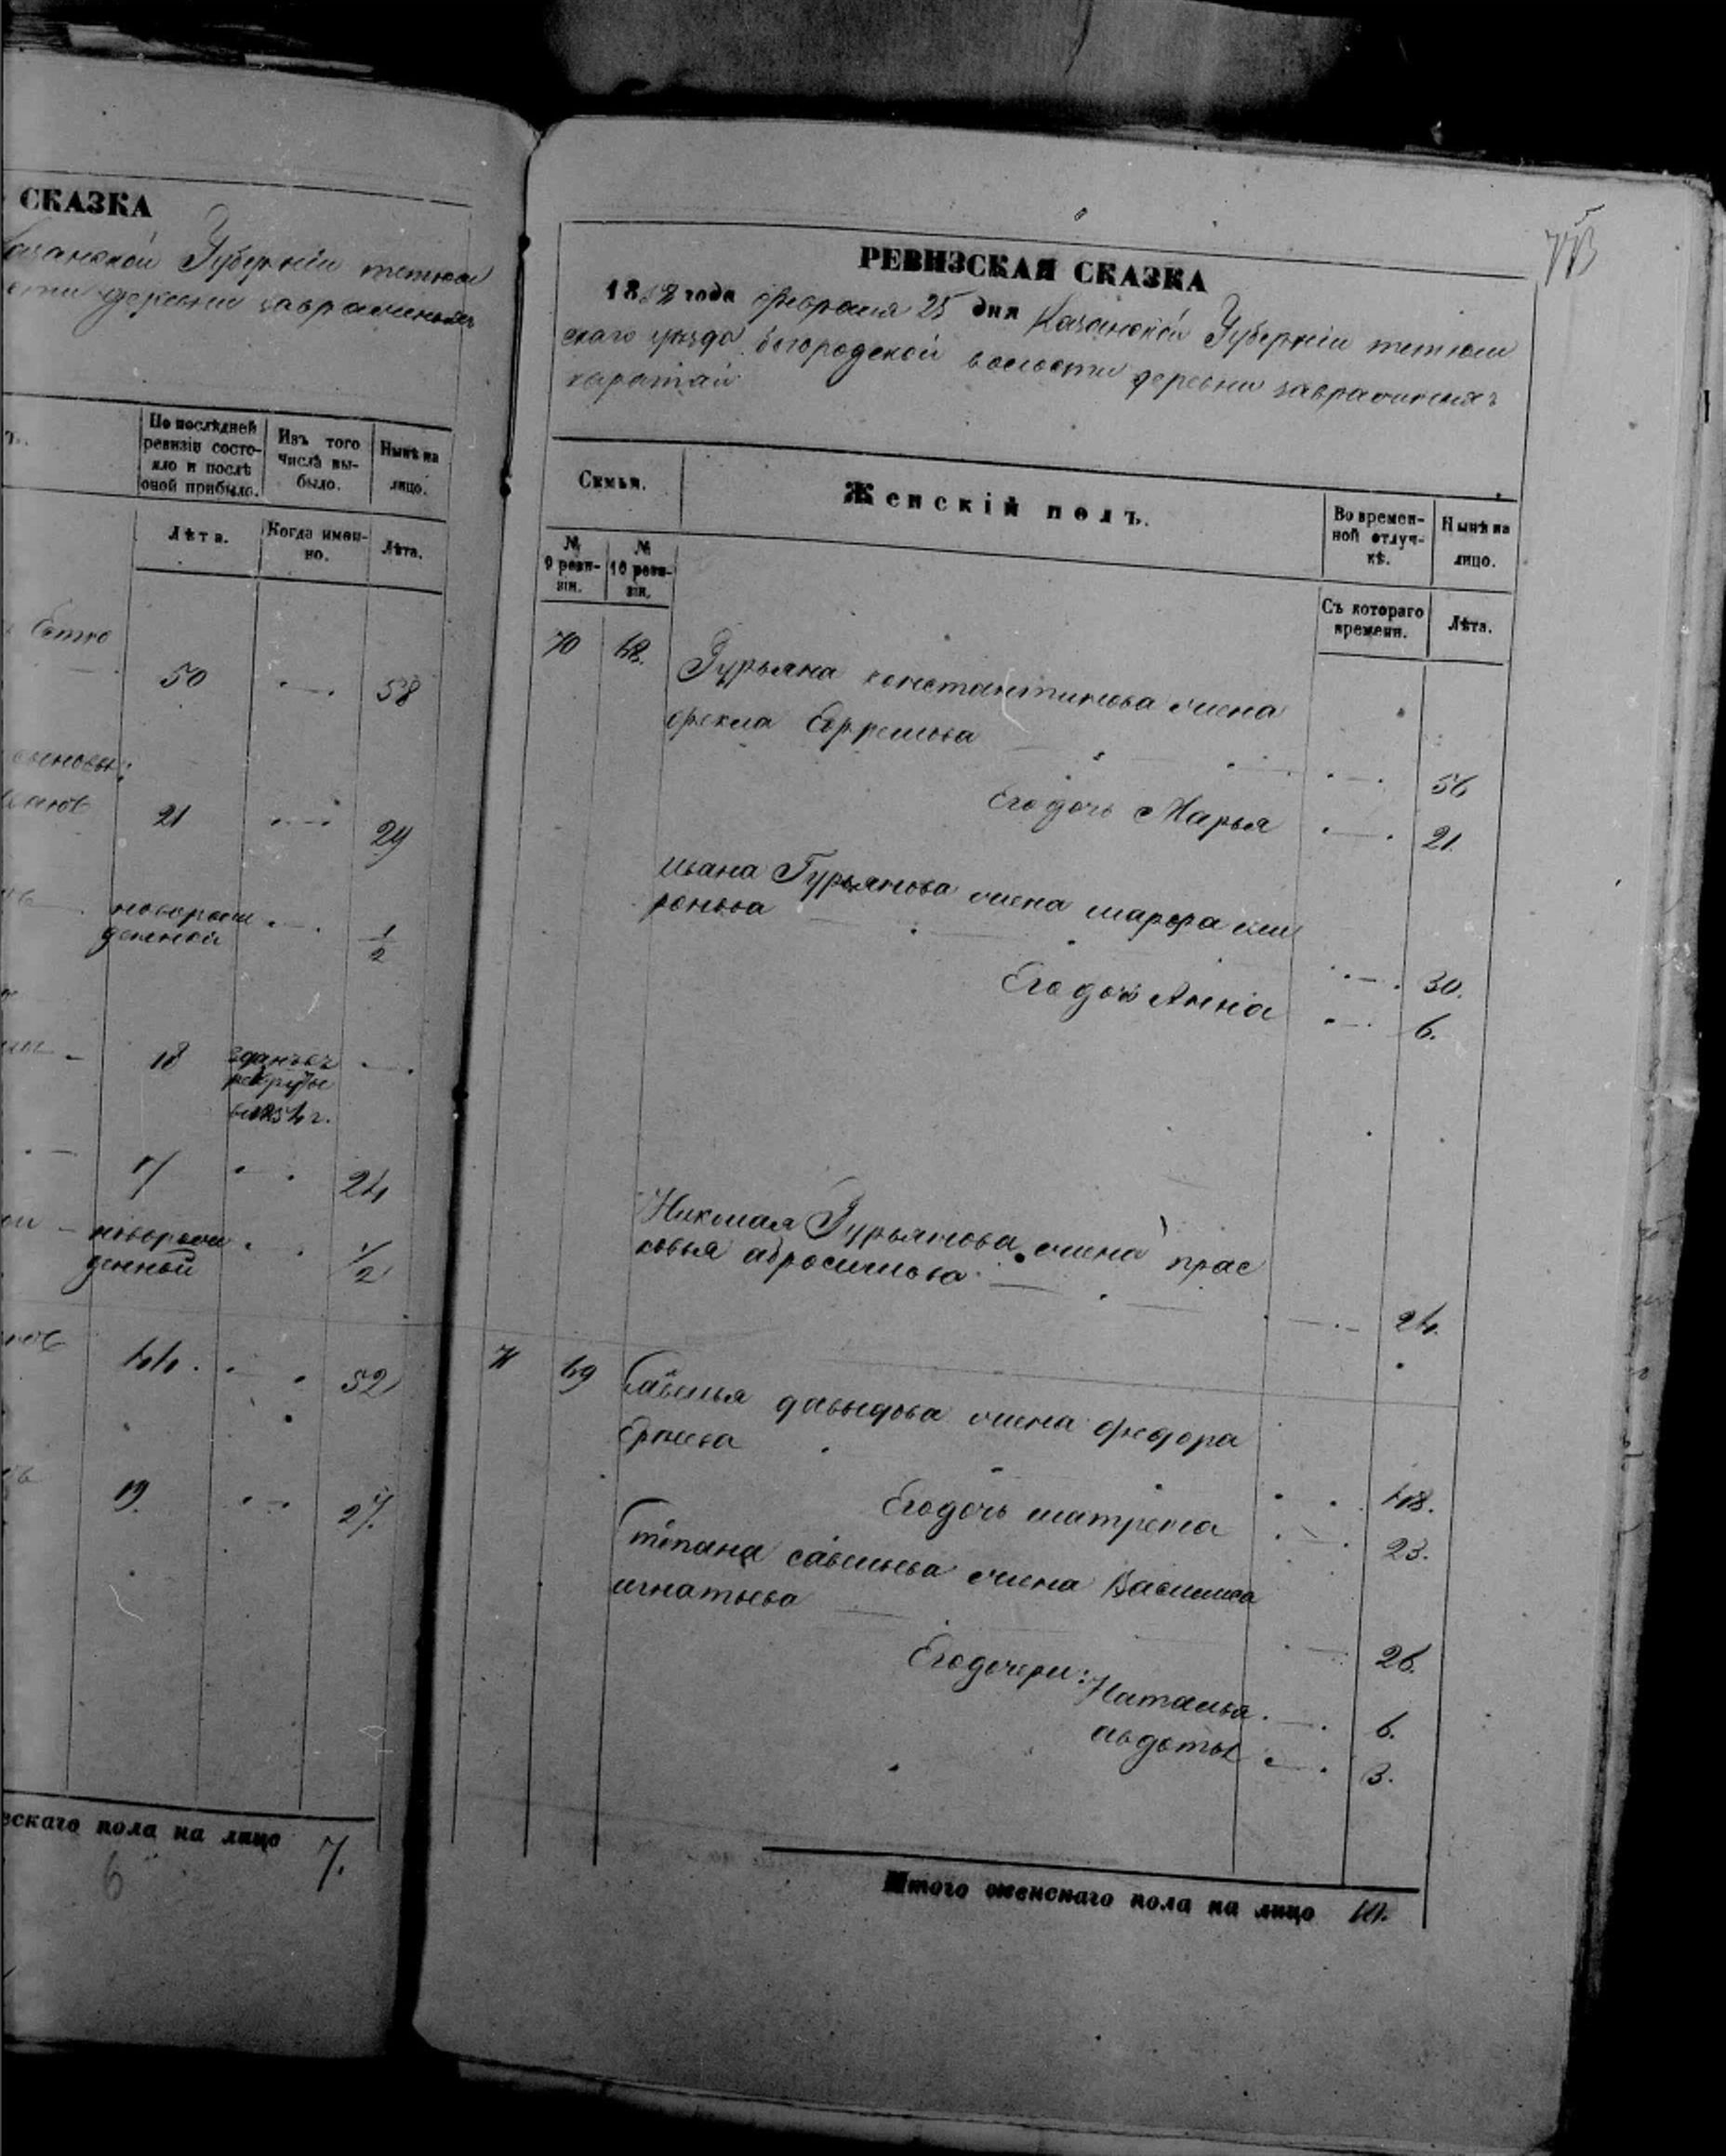 СКАЗКА
Губерніи тетюш
деревни завражныхъ
По послѣдней
ревизіи состо-
яло и послѣ
оной прибыло.
Изъ того
числа вы-
было.
Нынѣ на
лицо.
Лѣта.
Когда имен-
но.
Лѣта.
50
58
сыновья:
21
29
новорож
денной
1/2
18
зданъ въ
рекруты
въ 1854 г.
17
24
новорож
денной
1/2
44.
52
19.
27.
пола на лицо 7.
6
РЕВИЗСКАЯ СКАЗКА
1858 года февраля 25 дня Казанской Губерніи тетюш
скаго уѣзда богородской волости деревни завражныхъ
каратай
Семьи.
Женскій полъ.
Во времен-
ной отлуч-
кѣ.
Нынѣ на
лицо.
№
9 реви-
зіи.
№
10 реви-
зіи.
Съ котораго
времени.
Лѣта.
70 68. Гурьяна константинова жена
фекла Ефремова 56
Его дочь Марья 21.
ивана Гурьянова жена марфа ми
ронова 30.
Его дочь Анна 6.
Николая Гурьянова жена прас
ковья абросимова 24.
71 69 Савелья давыдова жена федора
48.
Его дочь матрена 23.
Степана савельева жена Василиса
игнатьева 26.
Его дочери: Наталья 6.
авдотья 3.
Итого женскаго пола на лицо 10.